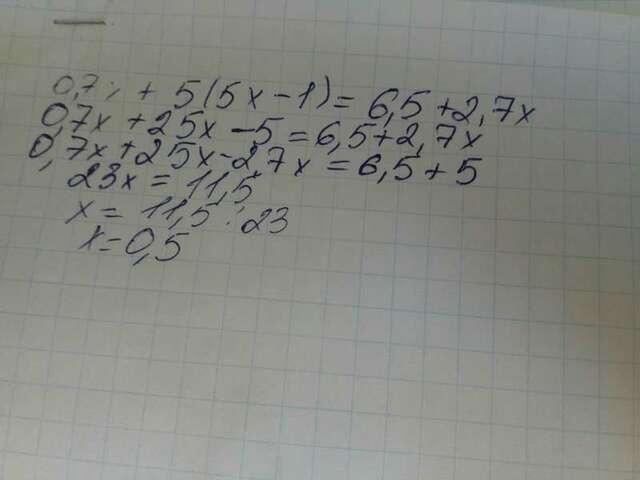 0,7x + 5(5x-1) = 6,5+2,7x
0,7x +25x -5 = 6,5+2,7x
0,7x+25x-27x = 6,5+5
23x = 11,5
x = 11,5 : 23
x=0,5